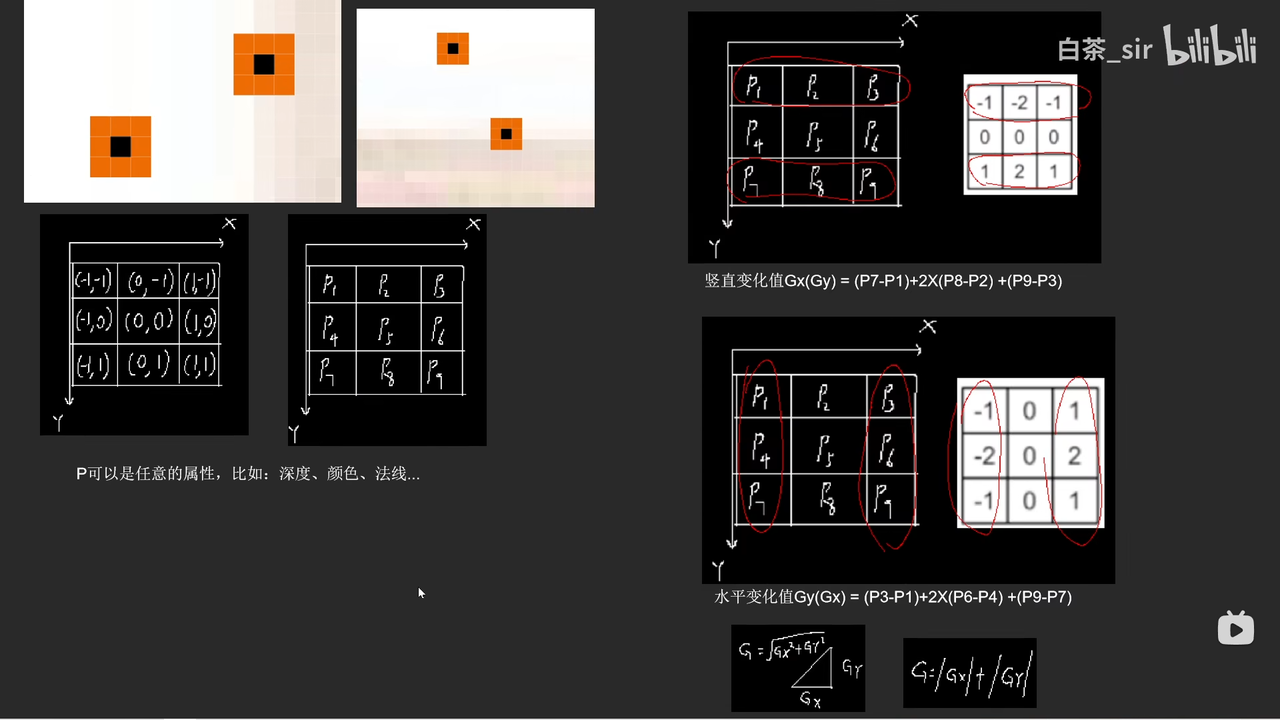 白茶_sir bilibili
X
(-1,-1) (0,-1) (1,-1)
(-1,0) (0,0) (1,0)
(-1,1) (0,1) (1,1)
Y
X
P1 P2 P3
P4 P5 P6
P7 P8 P9
Y
P可以是任意的属性，比如：深度、颜色、法线...
X
P1 P2 P3
P4 P5 P6
P7 P8 P9
Y
-1 -2 -1
0 0 0
1 2 1
竖直变化值Gx(Gy) = (P7-P1)+2X(P8-P2) +(P9-P3)
X
P1 P2 P3
P4 P5 P6
P7 P8 P9
Y
-1 0 1
-2 0 2
-1 0 1
水平变化值Gy(Gx) = (P3-P1)+2X(P6-P4) +(P9-P7)
G=√Gx²+Gy²
Gy
Gx
G=|Gx|+|Gy|